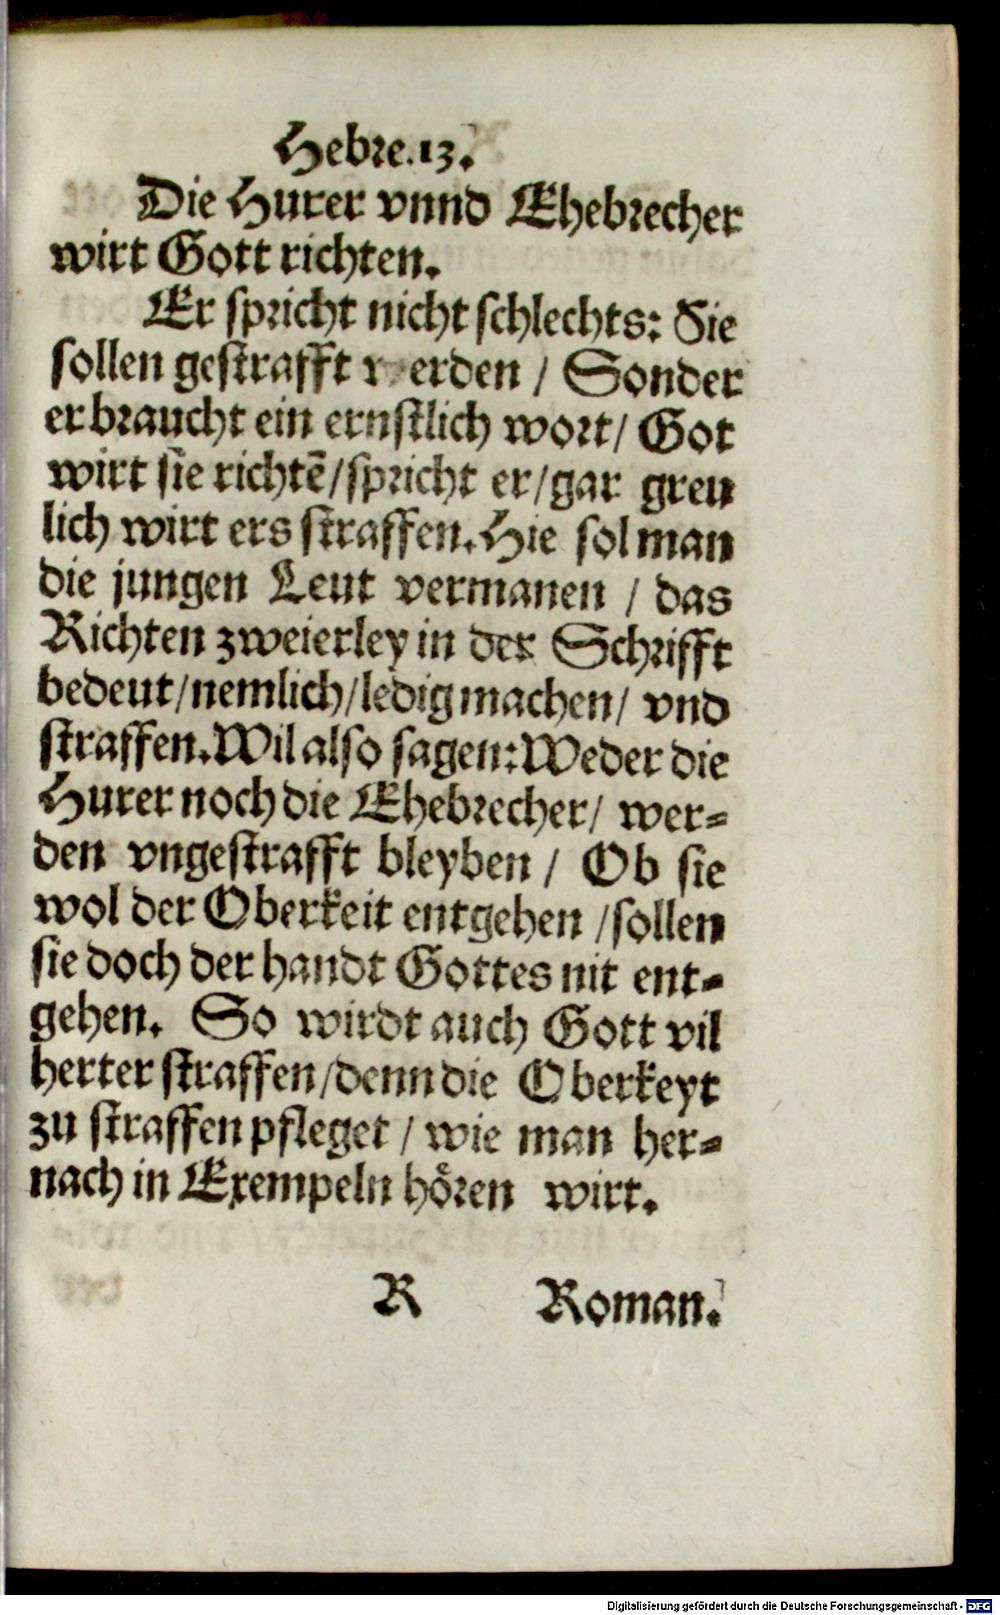 Hebre.13.
Die Hurer vnnd Ehebrecher
wirt Gott richten.
Er spricht nicht schlechts: Sie
sollen gestrafft werden / Sonder
er braucht ein ernstlich wort/ Got
wirt sie richtē/spricht er/gar greu
lich wirt ers straffen. Hie sol man
die jungen Leut vermanen / das
Richten zweierley in der Schrifft
bedeut/nemlich/ledig machen/ vnd
straffen. Wil also sagen: Weder die
Hurer noch die Ehebrecher/ wer⸗
den vngestrafft bleyben / Ob sie
wol der Oberkeit entgehen /sollen
sie doch der handt Gottes nit ent⸗
gehen. So wirdt auch Gott vil
herter straffen/denn die Oberkeyt
zu straffen pfleget / wie man her⸗
nach in Exempeln hoͤren wirt.
R Roman.
Digitalisierung gefördert durch die Deutsche Forschungsgemeinschaft - DFG